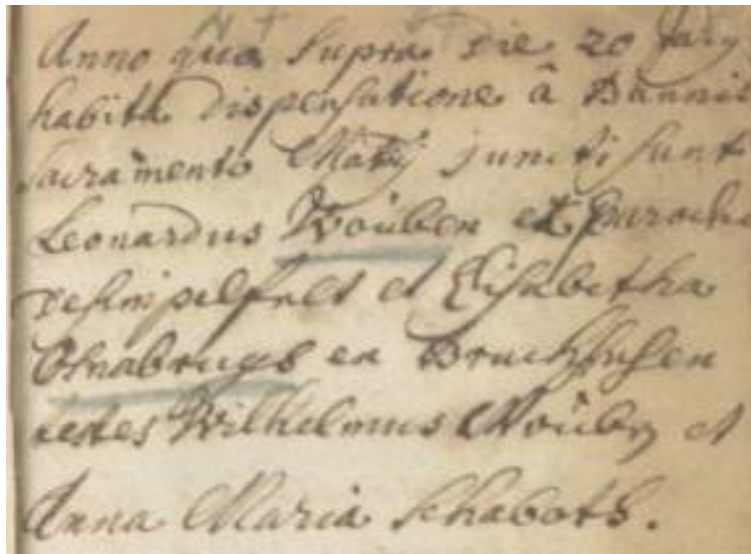 Anno quo Supra Die 20 Jarij
habita dispensatione â Bannis
Sacramento Matrij juncti sunt
Leonardus Woüben ex parochia
desimpelfelt et Elisabetha
Osnabrugs ex Bruchhusen
testes Wilhelmus Woüben et
Anna Maria Schabots.